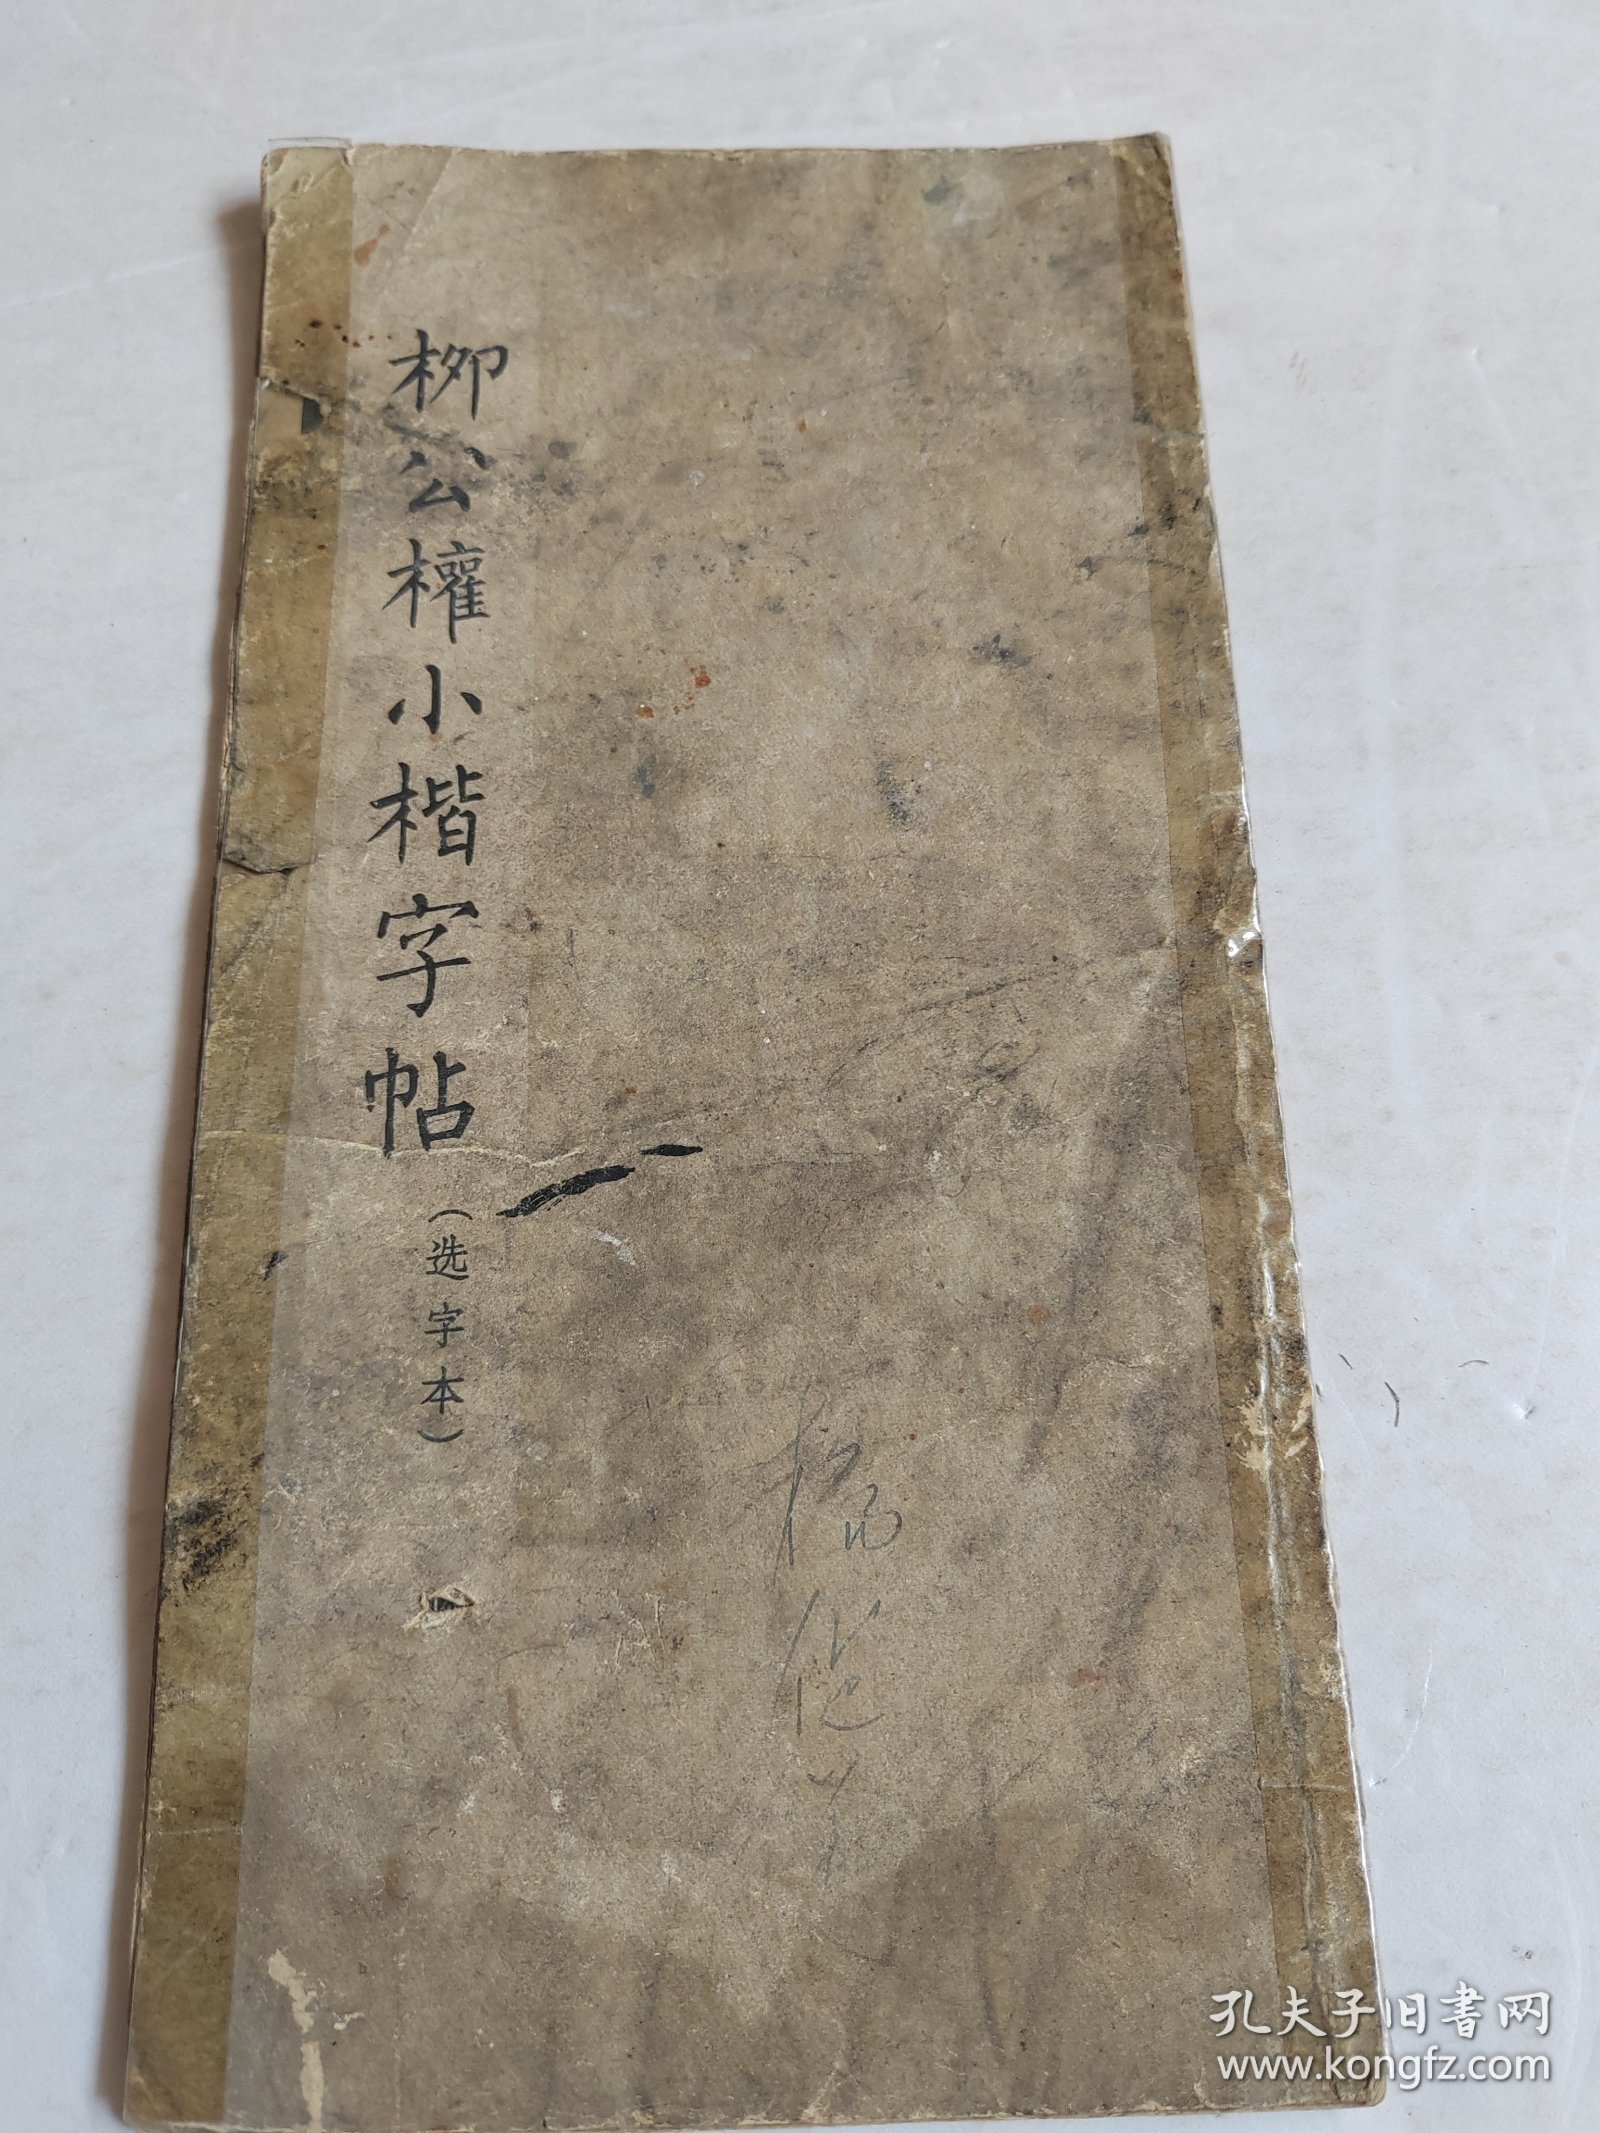 柳公權小楷字帖
（选字本）
孔夫子旧书网
www.kongfz.com